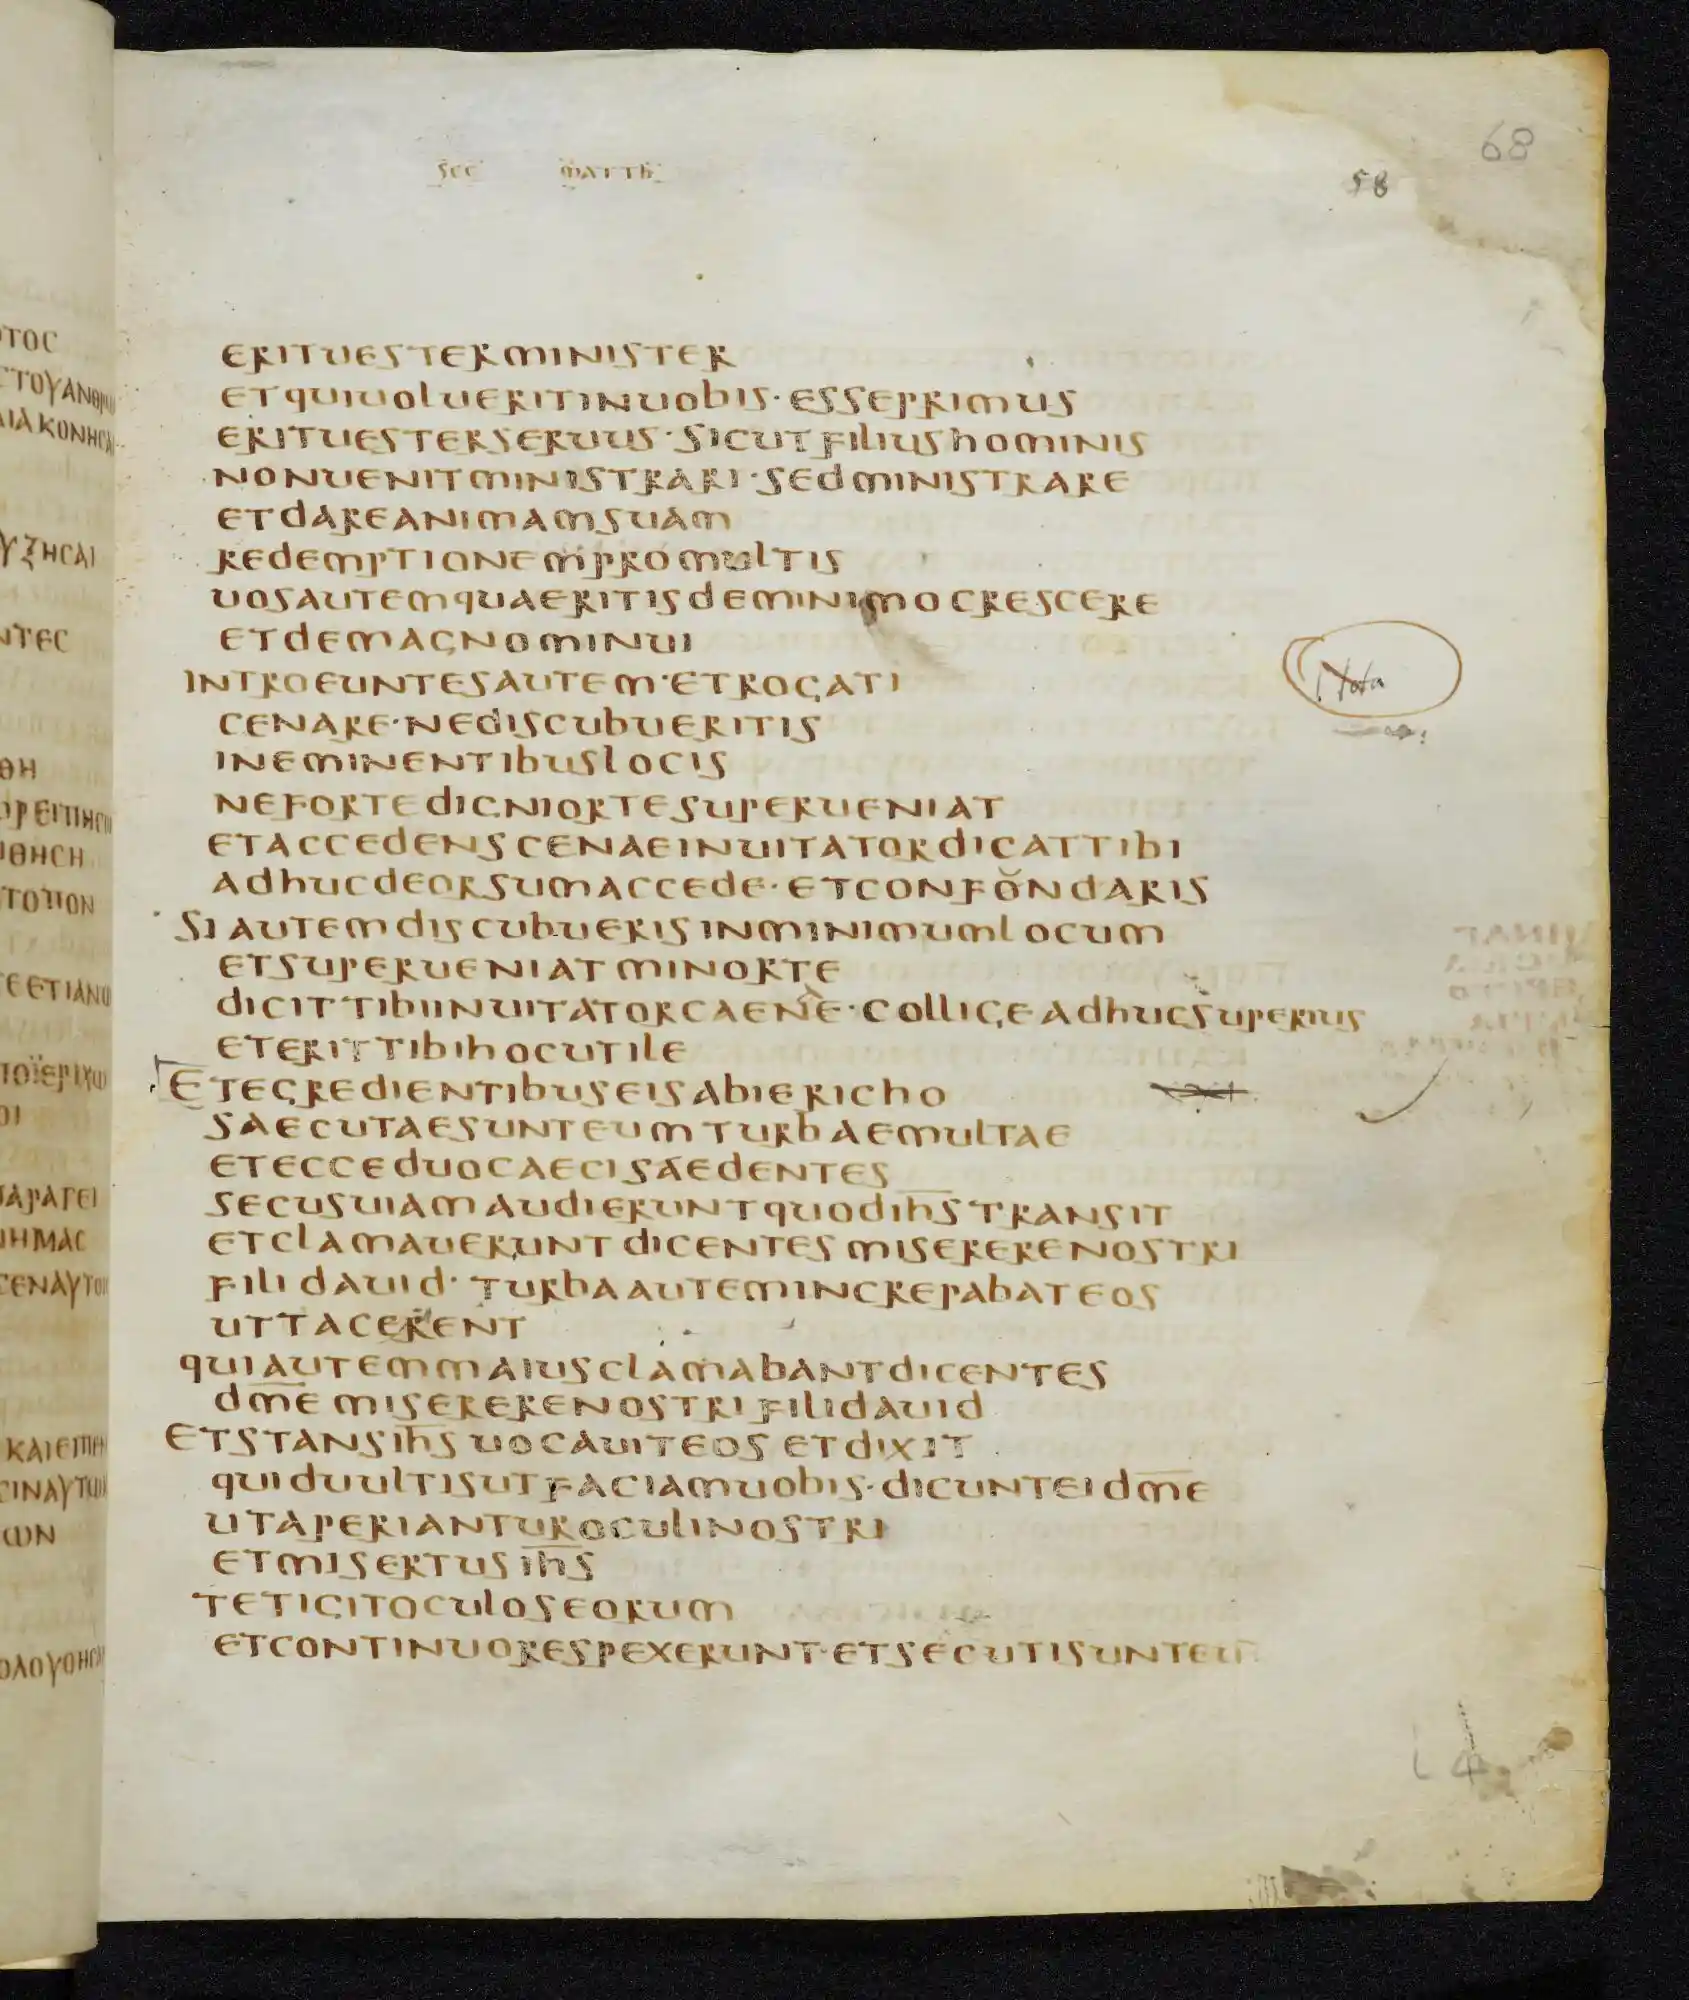 ΟΤΟС
СΤΟΥΑΝΘΡ
ΙΑΚΟΝΗСΑ
ΥΖΗСΑΙ
ΝΤЄС
ΘΗ
ΘΗСΗ
ΤΟΠΟΝ
ΤΟΪЄΡΙΧω
ΟΙ
ΠΑΡΑΓЄΙ
ΗΜΑС
ΚΑΙЄΙΠЄ
ωΝ
ΟΛΟΥΘΗСΑ
sec matth
68
58
erituesterminister
etquiuolueritinuobis·esseprimus
erituesterseruus·sicutfiliushominis
nonuenitministrari·sedministrare
etdareanimamsuam
redemptionempromultis
uosautemquaeritisdeminimocrescere
etdemagnominui
introeuntesautem·etrogati
cenare·nediscubueritis
ineminentibuslocis
nefortedigniortesuperueniat
etaccedenscenaeinuitatordicattibi
adhucdeorsumaccede·etconfondaris
siautemdiscubuerisinminimumlocum
etsuperueniatminorte
dicittibiinuitatorcaene·colligeadhucsuperius
eterittibihocutile
etegredientibuseisabiericho
saecutaesunteumturbaemultae
etecceduocaecisaedentes
secusuiamaudieruntquodih̅s̅transit
etclamaueruntdicentesmisererenostri
filidauid·turbaautemincrepabateos
uttacerent
quiautemmaiusclamabantdicentes
dm̅e̅misererenostrifilidauid
etstansih̅s̅uocauiteosetdixit
quiduultisutfaciamuobis·dicunteidm̅e̅
utaperianturoculinostri
etmisertusih̅s̅
tetigitoculoseorum
etcontinuorespexerunt·etsecutisunteum
Nota